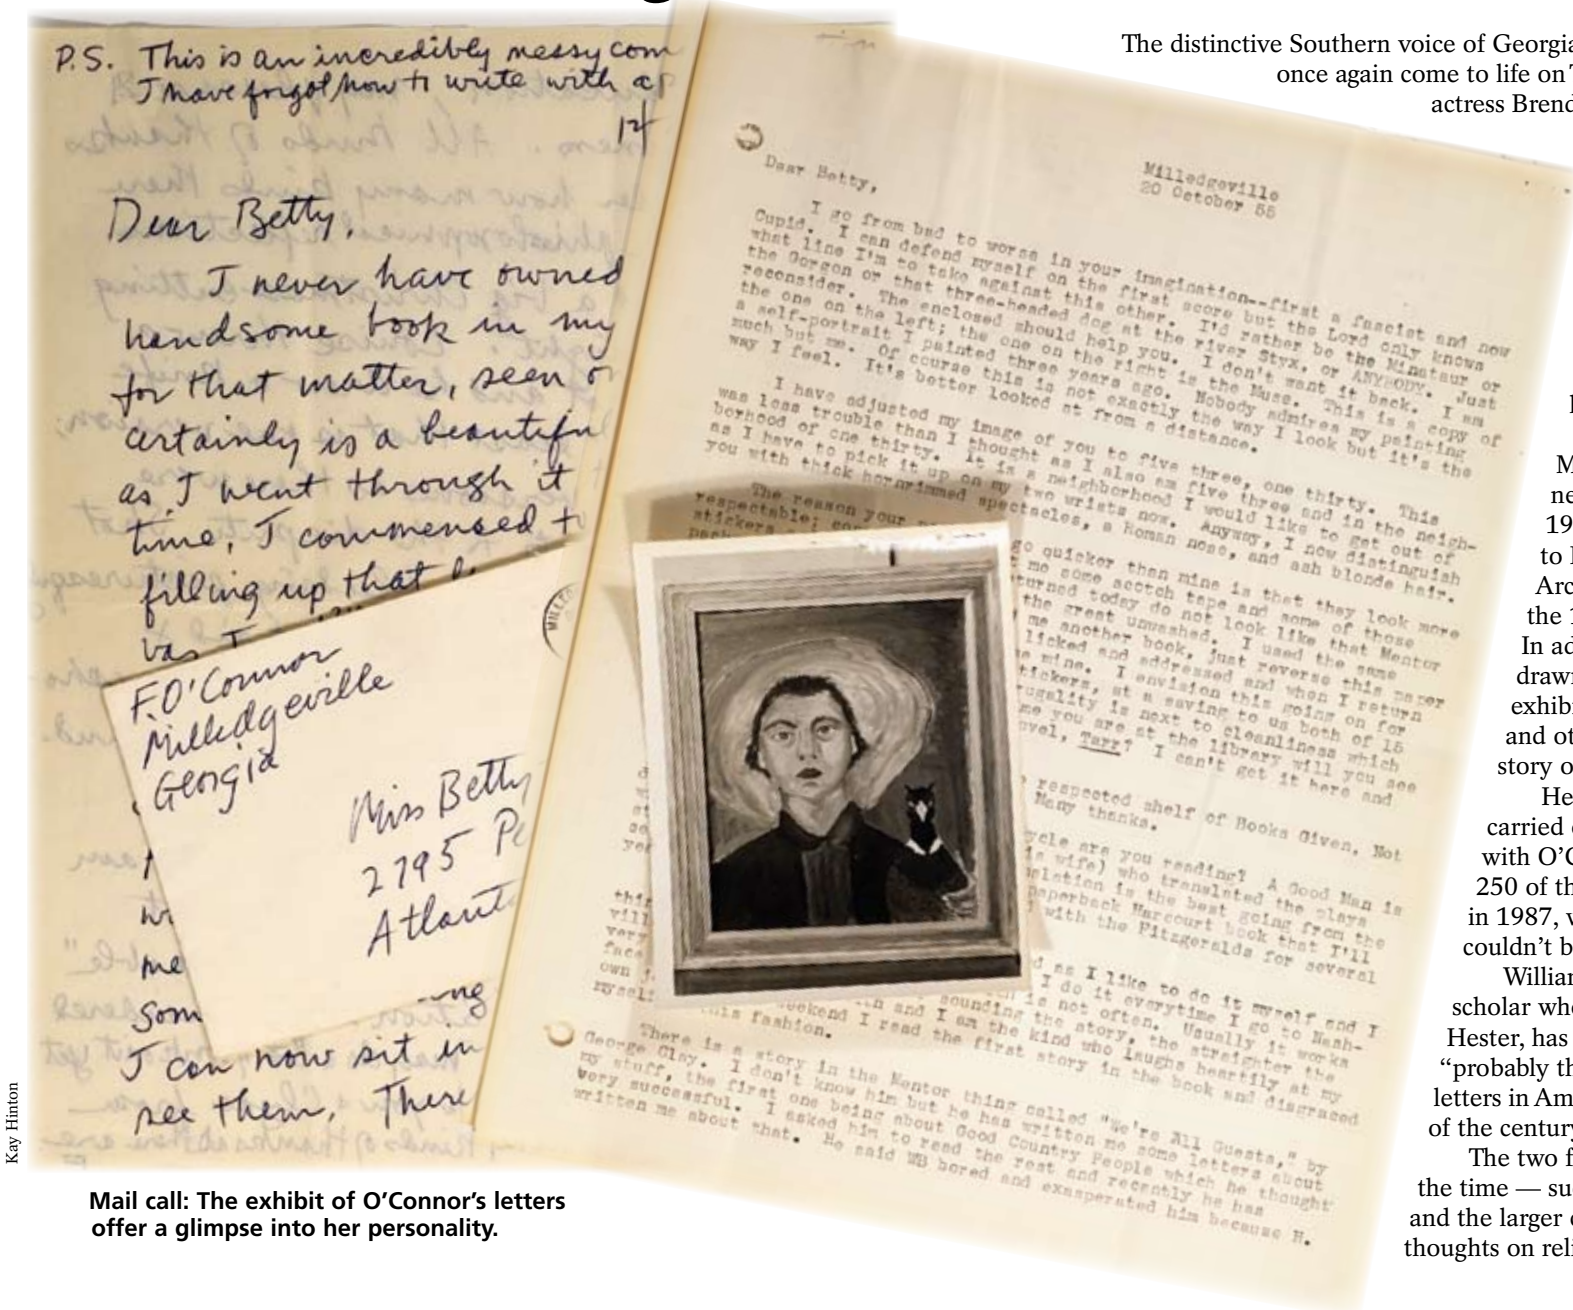 P.S. This is an incredibly messy com
I have forgot how to write with a p
12
Dear Betty,
I never have owned
handsome book in my
for that matter, seen o
certainly is a beautifu
as I went through it
time, I commenced t
filling up that
was I
F. O'Connor
Milledgeville
Georgia
Miss Betty
2795 Pe
Atlant
me
som
ng
I can now sit in
see them. There
Milledgeville
20 October 55
Dear Betty,
I go from bad to worse in your imagination--first a fascist and now
Cupid. I can defend myself on the first score but the Lord only knows
what line I'm to take against this other. I'd rather be the Minataur or
the Gorgon or that three-headed dog at the river Styx, or ANYBODY. Just
reconsider. The enclosed should help you. I don't want it back. I am
the one on the left; the one on the right is the Muse. This is a copy of
a self-portrait I painted three years ago. Nobody admires my painting
much but me. Of course this is not exactly the way I look but it's the
way I feel. It's better looked at from a distance.
I have adjusted my image of you to five three, one thirty. This
was less trouble than I thought as I also am five three and in the neigh-
borhood of one thirty. It is a neighborhood I would like to get out of
as I have to pick it up on my two wrists now. Anyway, I now distinguish
you with thick hornrimmed spectacles, a Roman nose, and ash blonde hair.
The reason your go quicker than mine is that they look more
respectable; me some scotch tape and some of those
stickers turned today do not look like that Mentor
the great unwashed. I used the same
me another book, just reverse this paper
licked and addressed and when I return
mine. I envision this going on for
tickers, at a saving to us both of 15
ugality is next to cleanliness which
me you are at the library will you see
vel, Tarr? I can't get it here and
respected shelf of Books Given, Not
Many thanks.
ycle are you reading? A Good Man is
is wife) who translated the plays
nslation is the best going from the
paperback Harcourt book that I'll
with the Fitzgeralds for several
as I like to do it myself and I
I do it everytime I go to Nash-
is not often. Usually it works
sounding the story, the straighter the
and I am the kind who laughs heartily at my
own
eekend I read the first story in the book and disgraced
myself this fashion.
There is a story in the Mentor thing called "We're All Guests," by
George Clay. I don't know him but he has written me some letters about
my stuff, the first one being about Good Country People which he thought
very successful. I asked him to read the rest and recently he has
written me about that. He said WB bored and exasperated him because H.
The distinctive Southern voice of Georgia
once again come to life on T
actress Brend
M
ne
19
to
Arc
the 1
In ad
drawn
exhibi
and ot
story o
He
carried
with O'C
250 of th
in 1987, w
couldn't b
William
scholar who
Hester, has
“probably th
letters in Am
of the century
The two f
the time — su
and the larger
thoughts on reli
Kay Hinton
Mail call: The exhibit of O'Connor's letters
offer a glimpse into her personality.